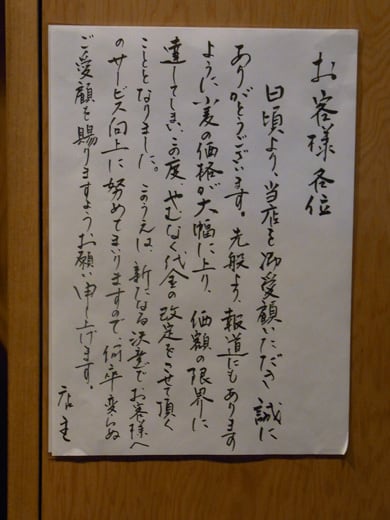 お客様各位
日頃より、当店を御愛顧いただき誠に
ありがとうございます。先般より、報道にもあります
ように小麦の価格が大幅に上り、価額の限界に
達してしまい、この度、やむなく代金の改定をさせて頂く
こととなりました。このうえは、新たなる決意でお客様へ
のサービス向上に努めてまいりますので、何卒変らぬ
ご愛顧を賜りますようお願い申し上げます。
店主